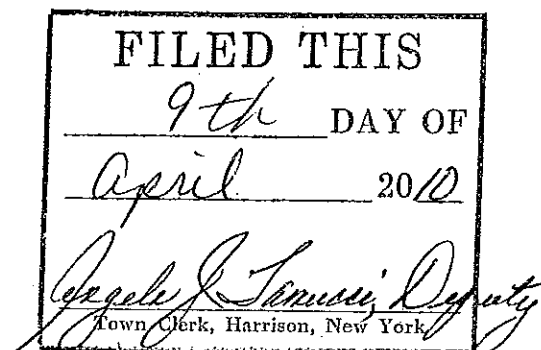 FILED THIS
9th DAY OF
April 2010
Angela J. Ianucci, Deputy
Town Clerk, Harrison, New York